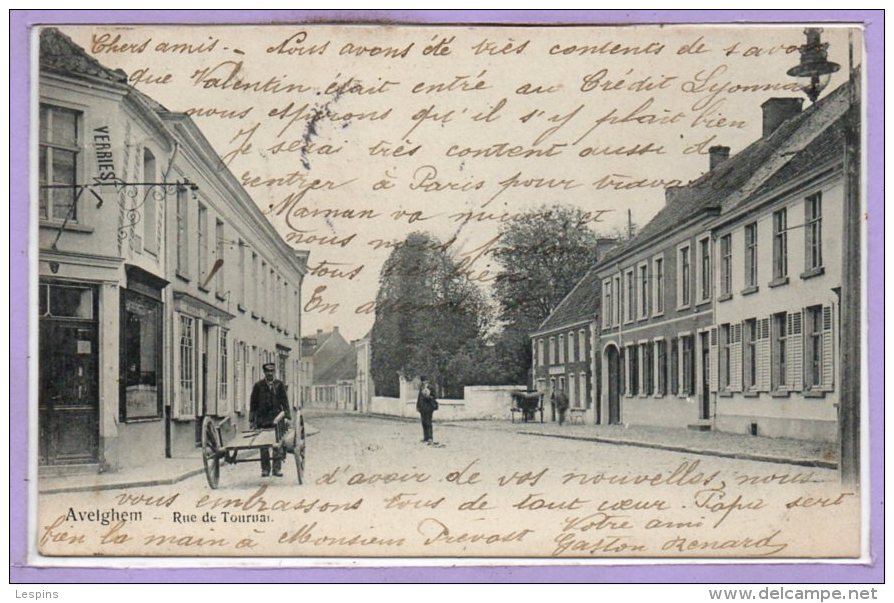 Chers amis - Nous avons été très contents de savoir
que Valentin était entré au Crédit Lyonnais
nous espérons qu'il s'y plait bien
Je serai très content aussi de
rentrer à Paris pour travailler
Maman va mieux
nous
tous
En
VERRIEST
d'avoir de vos nouvelles, nous
vous embrassons tous de tout cœur. Papa sert
Avelghem - Rue de Tournai.
Votre ami
bien la main à Monsieur Prévost
Gaston Renard
Lespins
www.delcampe.net